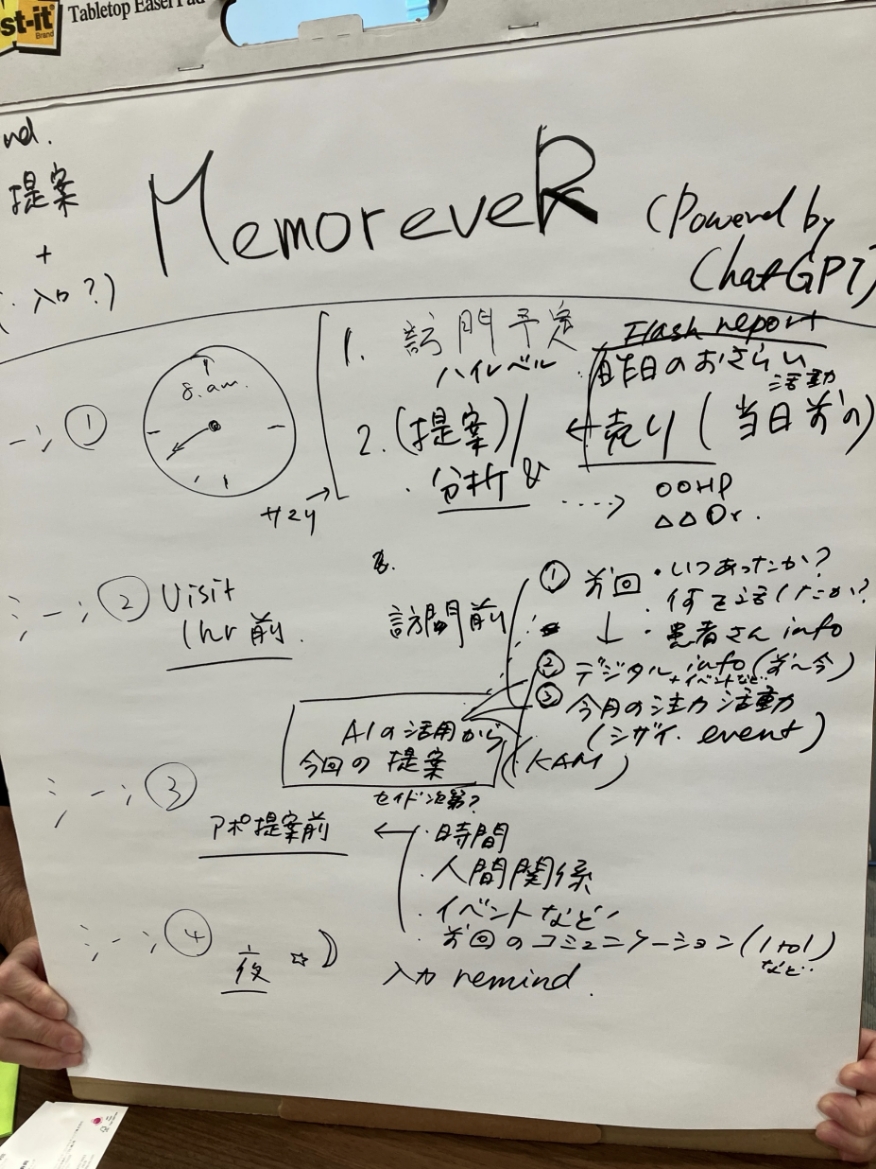 st-it
Brand
Tabletop Easel Pad
nd.
提案
+
入口?)
MemoreveR
(Powered by
ChatGPT)
シーン①
8.am.
1. 訪問予定
ハイレベル
Flash report
・昨日のおさらい
活動
2. (提案)/
・分析&
← 売り (当日前の)
‥‥→ ○○HP
△△Dr.
シーン② Visit
1hr前.
訪問前
① 前回 ・いつあったか?
・何を話したか?
↓ ・患者さん info
② デジタル info (前〜今)
+イベントなど‥
③ 今月の注力活動
(シザイ. event)
(KAM)
AIの活用から
今回の提案
シーン③
アポ提案前 ←
・時間
・人間関係
・イベントなど
・前回のコミュニケーション(1to1)
など‥
シーン④
夜
入力 remind.